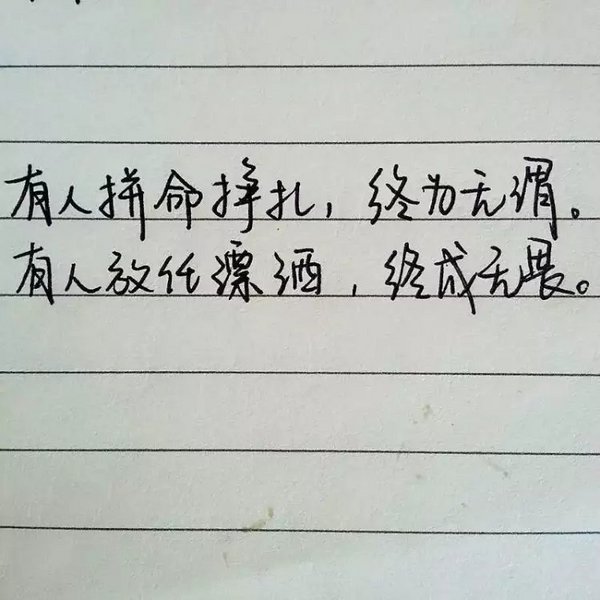 有人拼命挣扎，终为无谓。
有人放任漂洒，终成无畏。